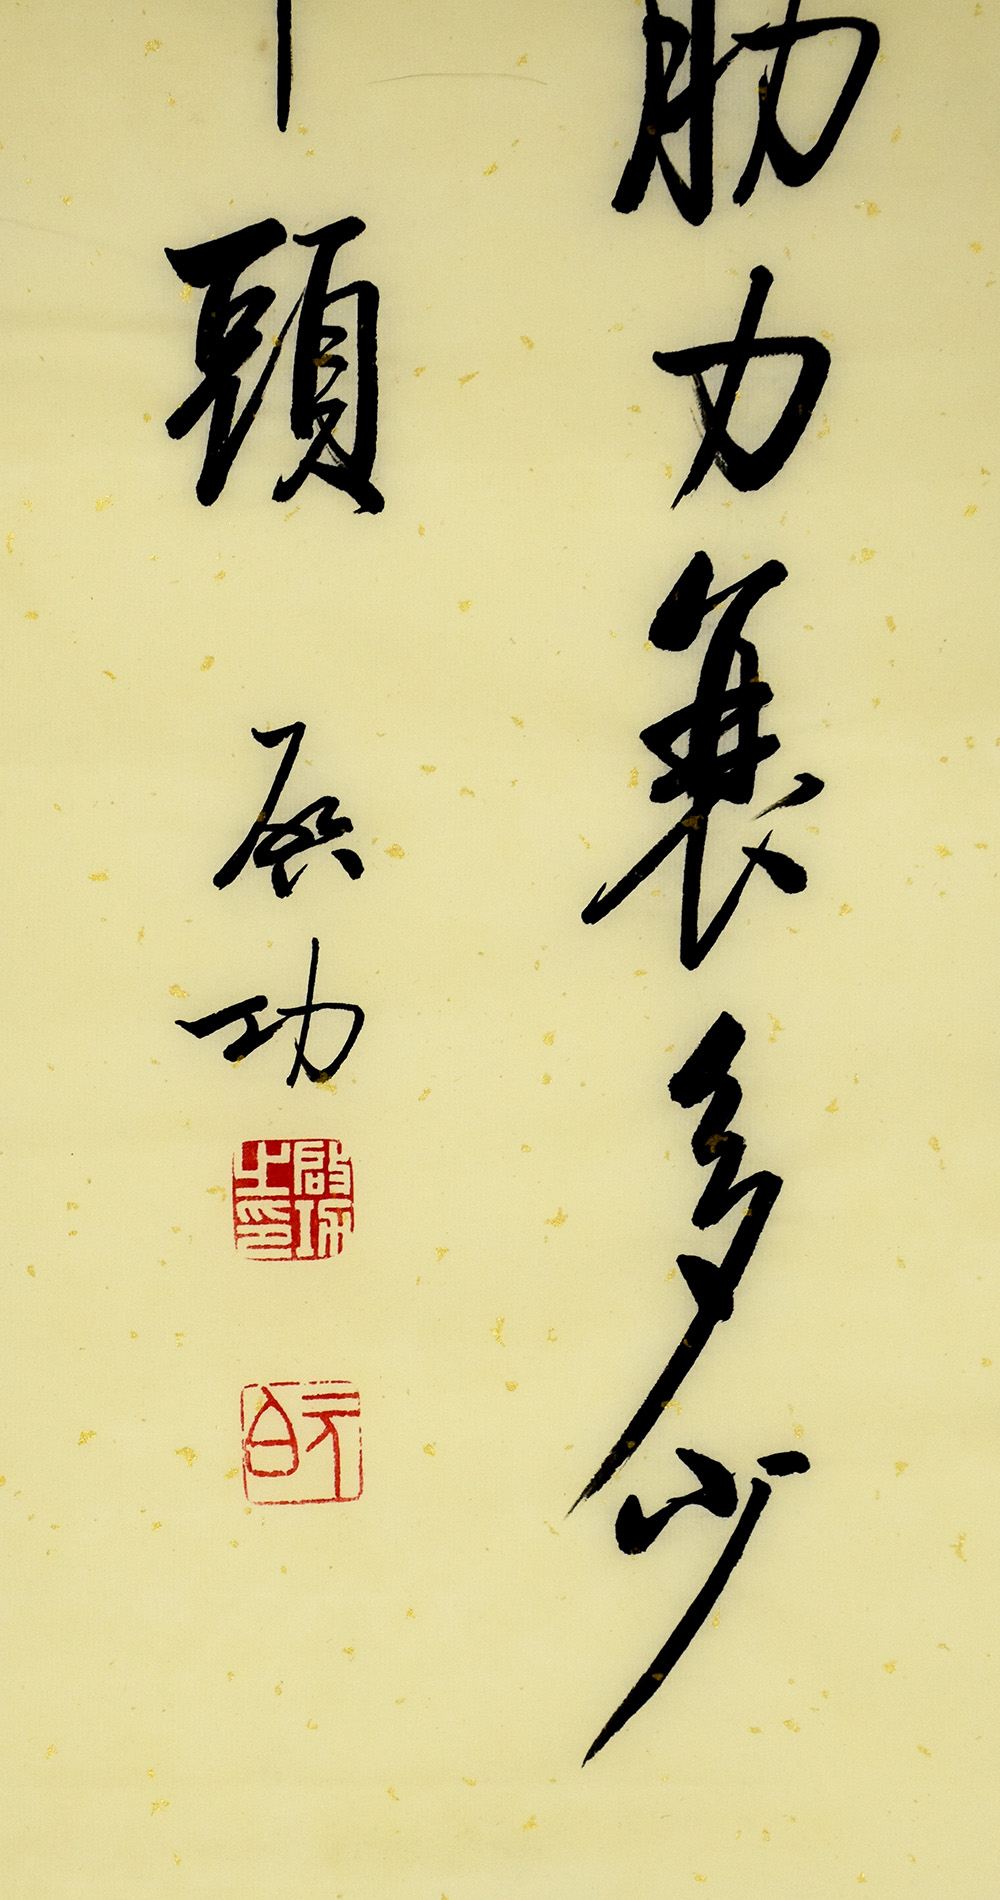 筋力衰多少
頭
启功
啟功之印
元白